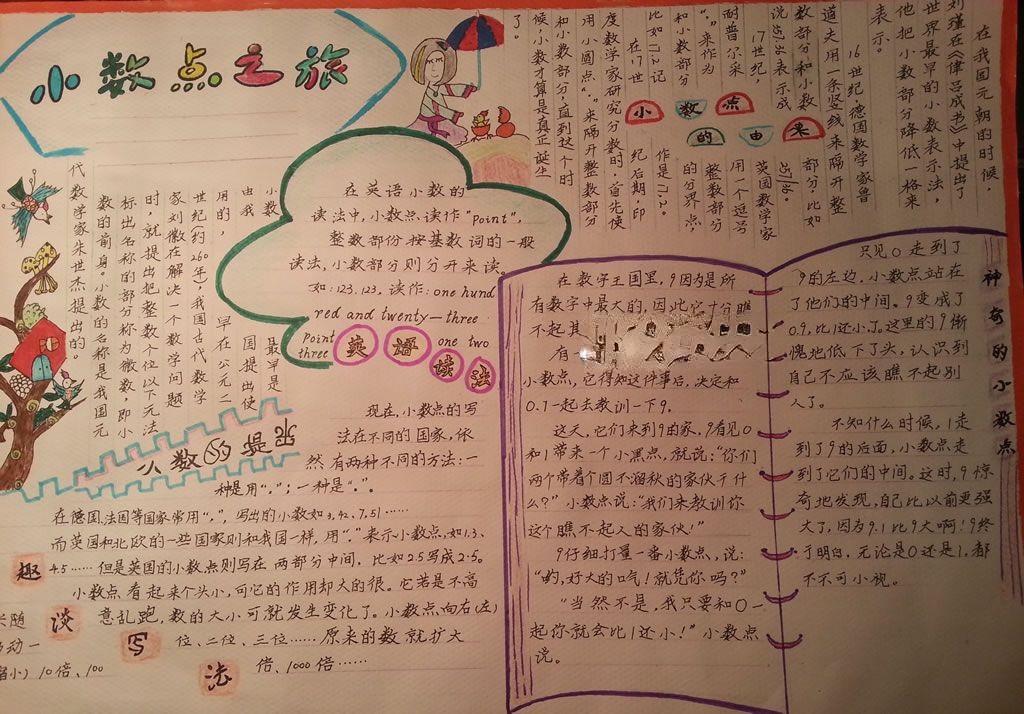 小数点之旅
在我国元朝的时候，
刘瑾在《律吕成书》中提出了
世界最早的小数表示法，
他把小数部分降低一格来
表示。
16世纪，德国数学家鲁
道夫用一条竖线来隔开整
数部分和小数部分，比如
257.36表示成257|36
17世纪，英国数学家
耐普尔采用一个逗号
“，”来作为整数部分
和小数部分的分界点
比如17.2记作是17,2。
在17世纪后期，印
度数学家研究分数时，首先使
用小圆点“.”来隔开整数部分
和小数部分，直到这个时
候，小数才算是真正诞生
了。
小数点的由来
小数
最早是
由我国提出使
用的，早在公元三
世纪(约260年)，我国古代数学
家刘徽在解决一个数学问题
时，就提出把整数个位以下无法
标出名称的部分称为微数，即小
数的前身。小数的名称是我国元
代数学家朱世杰提出的。
小数的
在英语小数的
读法中，小数点读作“point”，
整数部份按基数词的一般
读法，小数部分则分开来读。
如：123.123，读作：one hund
red and twenty—three
Point
one two
three
英语读法
现在，小数点的写
法在不同的国家，依
然有两种不同的方法：一
种是用“，”；一种是“.”。
在德国、法国等国家常用“，”，写出的小数如3,42、7,51……
而英国和北欧的一些国家则和我国一样，用“.”表示小数点，如1.3、
4.5……但是英国的小数点则写在两部分中间，比如2.5写成2·5。
小数点看起来个头小，可它的作用却大的很。它若是不高
兴随意乱跑，数的大小可就发生变化了。小数点向右(左)
移动一位、二位、三位……原来的数就扩大
(缩小)10倍、100倍、1000倍……
趣淡写法
神奇的小数点
在数字王国里，9因为是所
有数字中最大的，因此它十分瞧
不起其
有
小数点，它得知这件事后，决定和
0、1一起去教训一下9。
这天，它们来到9的家，9看见0
和1带来一个小黑点，就说：“你们
两个带着个圆不溜秋的家伙干什
么？”小数点说：“我们来教训你
这个瞧不起人的家伙！”
9仔细打量一番小数点，说：
“哟，好大的口气！就凭你吗？”
“当然不是，我只要和0一
起你就会比1还小！”小数点
说。
只见0走到了
9的左边，小数点站在
了他们的中间。9变成了
0.9，比1还小了。这里的9惭
愧地低下了头，认识到
自己不应该瞧不起别
人了。
不知什么时候，1走
到了9的后面，小数点走
到了它们的中间。这时，9惊
奇地发现，自己比以前更强
大了，因为9.1比9大啊！9终
于明白，无论是0还是1，都
不不可小视。